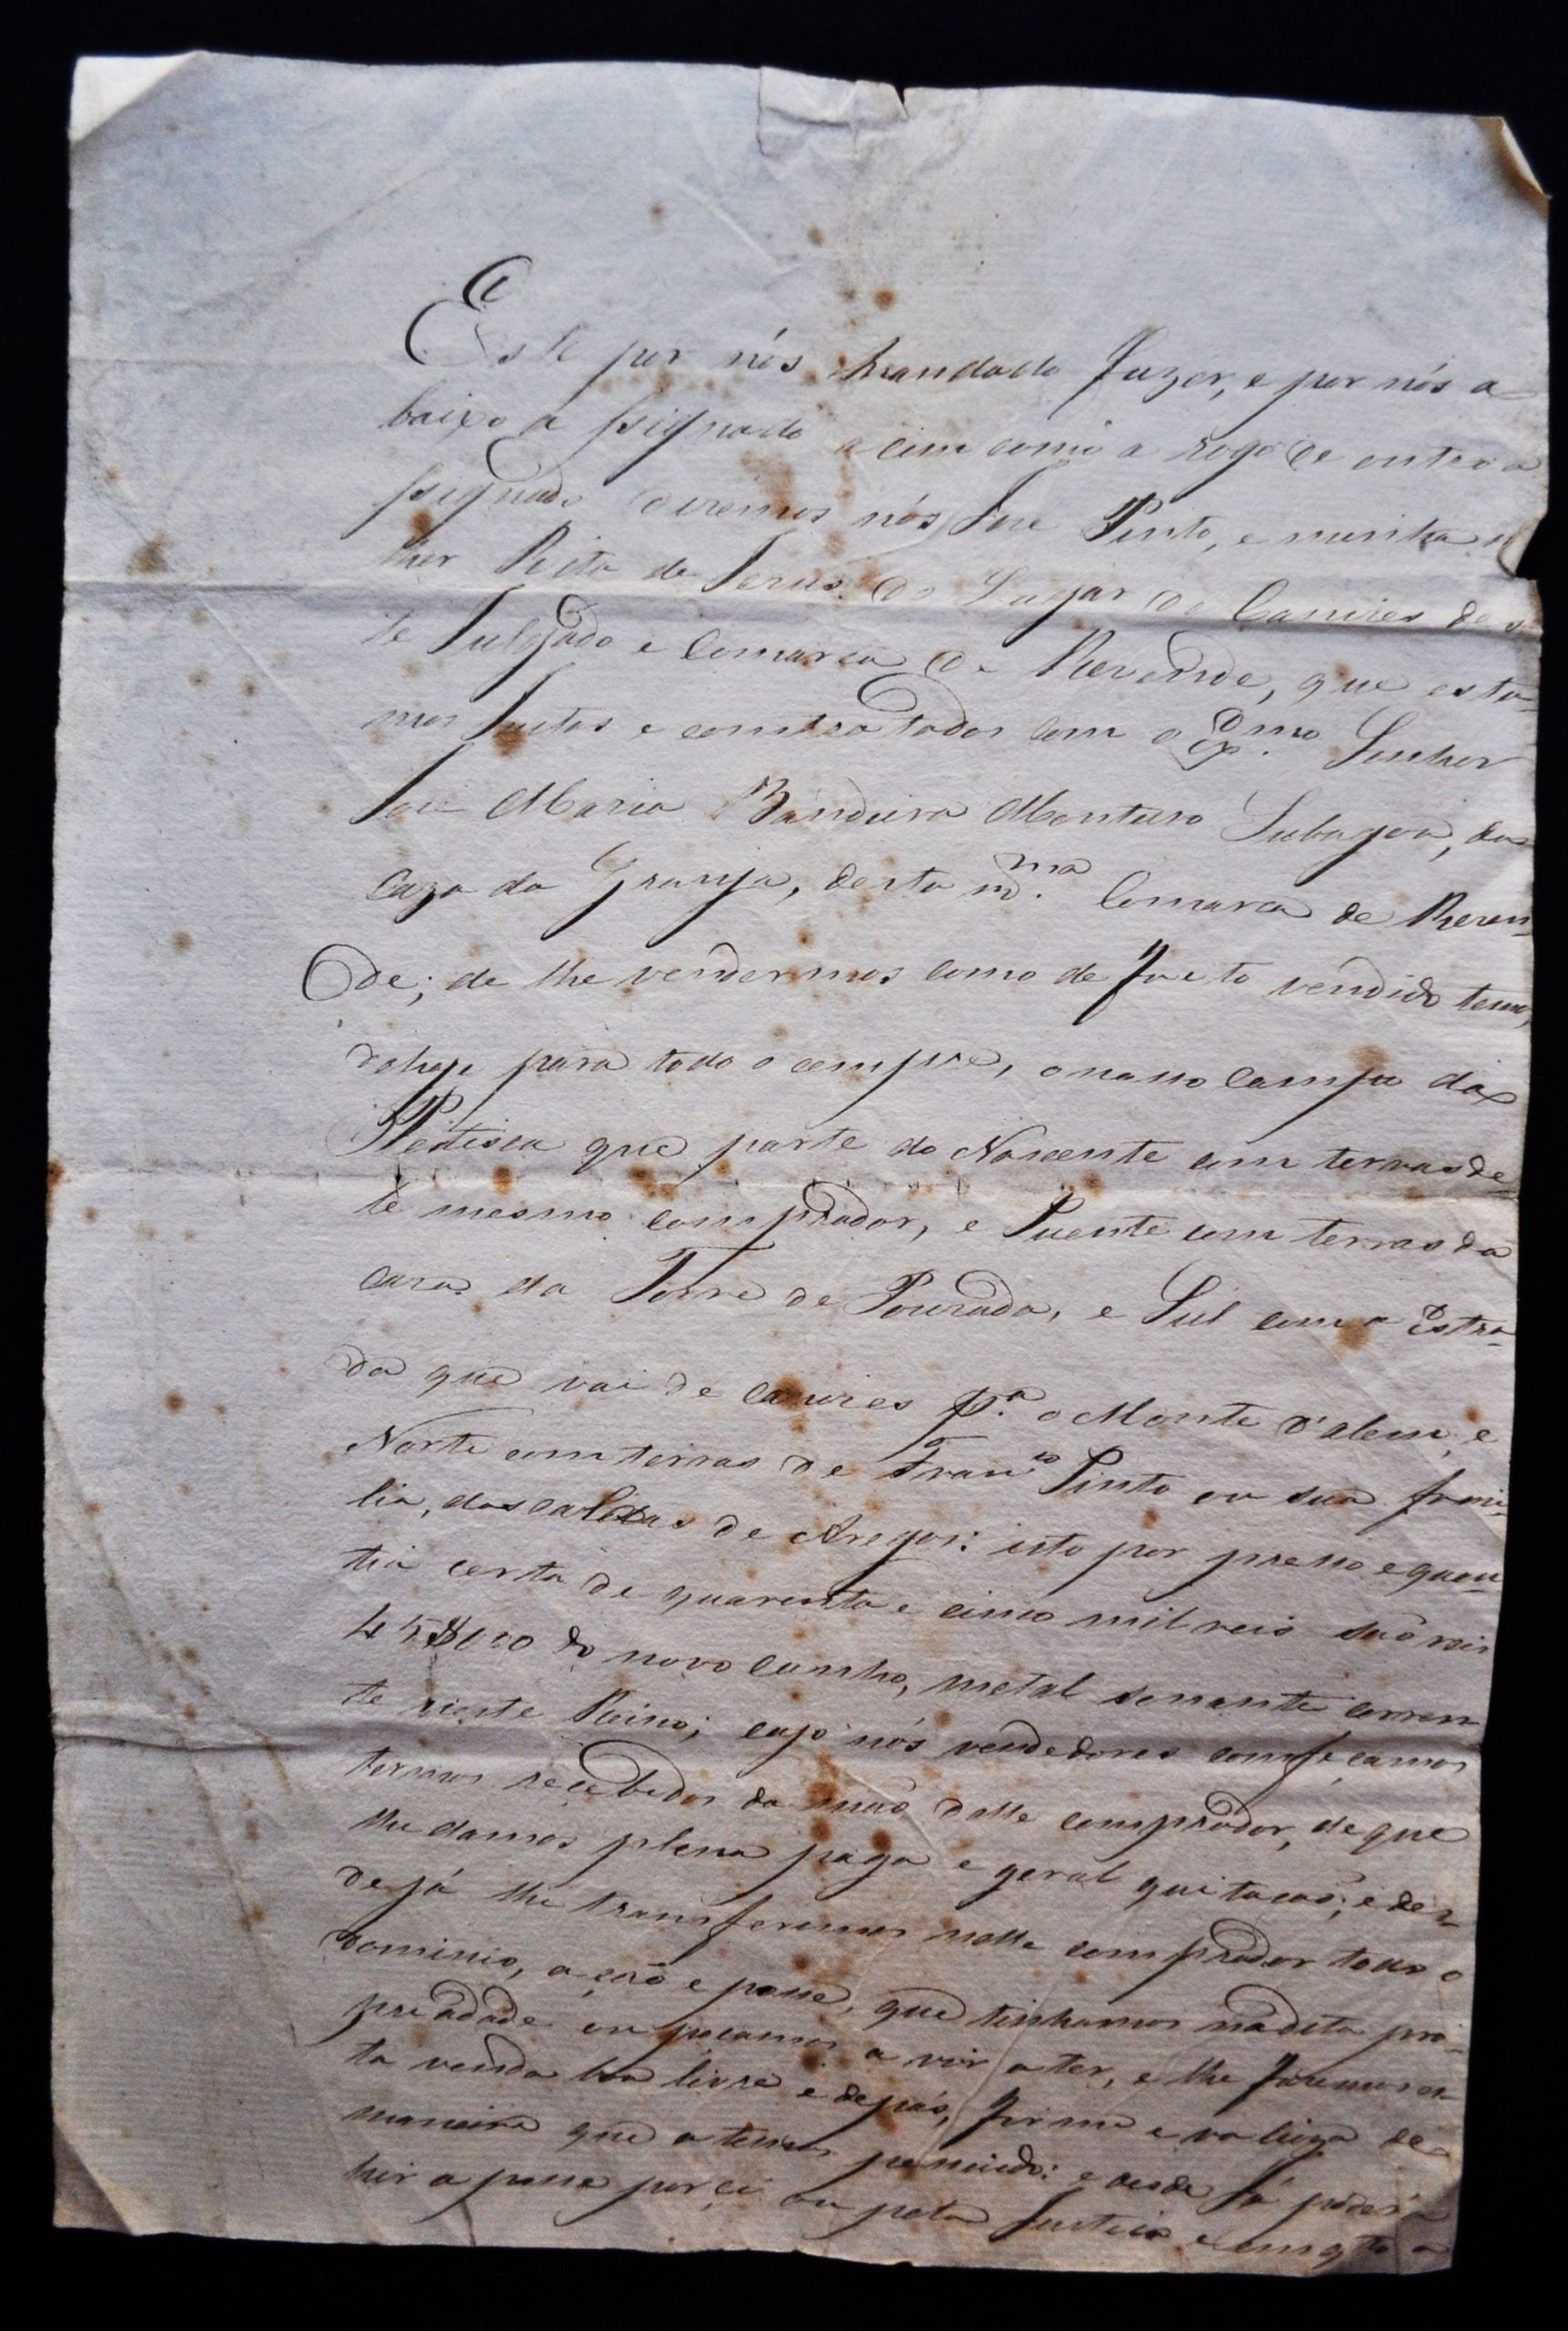 Este por nós mandado fazer, e por nós a-
baixo assignado acim como a rogo de outro a
ssignado dizemos nós Jose Pinto, e minha m
lher Rita de Jezus do Lugar de Canires des-
te Julgado e Comarca de Rezende, que esta-
mos justos e contratados com o Exmo. Senhor
José Maria Bandeira Monteiro Subagoa, da
Caza da Granja, desta mma. Comarca de Rezen-
de; de lhe vendermos como de facto vendido temos,
dehoje para todo o cempre, o nosso Campo da
que parte do Nascente com terras des-
te mesmo comprador, e Puente com terras da
casa da Torre de Pouzada, e Sul com a Estra-
da que vai de Canires pa. o Monte d'alem, e
Norte com terras de Franco Pinto ou sua fami-
lia, das caldas de Aregos: isto por presso e quan-
tia certa de quarenta e cinco mil reis são reis
45$000 do novo cunho, metal sonante corren
te neste Reino; cujo nós vendedores comfeçamos
termos recebidos da mão delle comprador, de que
lhe damos plena paga e geral quitacaõ; e des-
de já lhe transferimos nelle comprador todo o
dominio, acção e posse, que tinhamos na dita pro-
priadade ou peçamos a vir a ter, e lhe faremos es-
ta venda boa livre e depás, firme e valioza de
maneira que a temos pussuido: e desde já poderá
hir a posse por ci ou pela Justica e emqto a